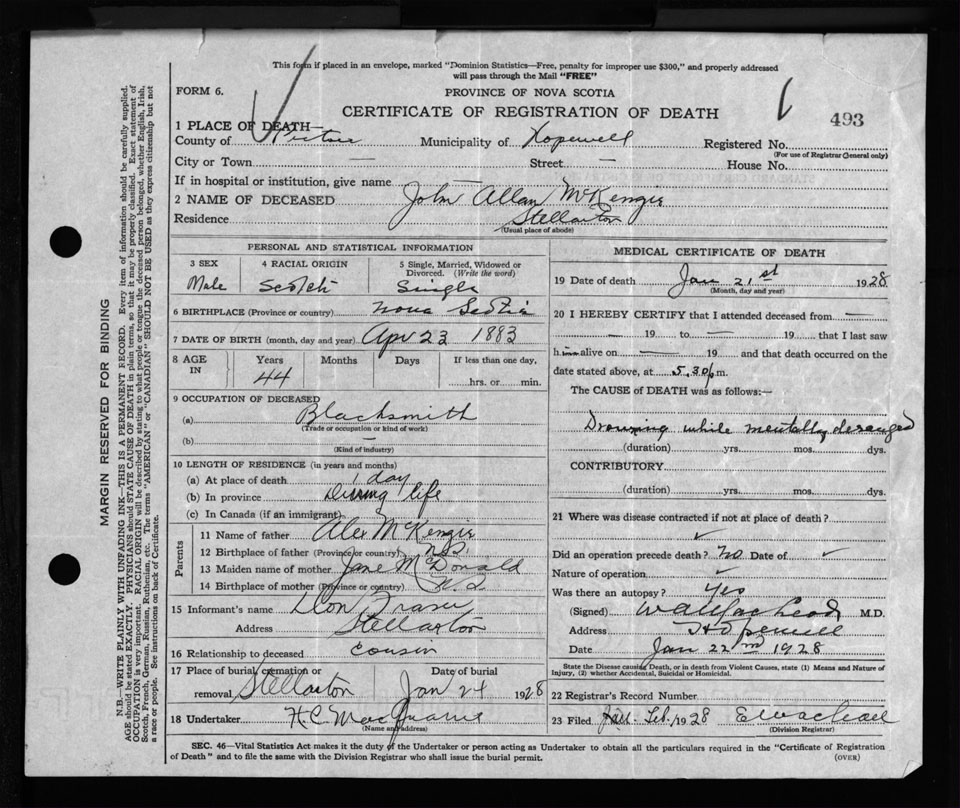 This form if placed in an envelope, marked "Dominion Statistics—Free, penalty for improper use $300," and properly addressed
will pass through the Mail "FREE"
FORM 6.
PROVINCE OF NOVA SCOTIA
CERTIFICATE OF REGISTRATION OF DEATH
493
1 PLACE OF DEATH—
County of Pictou Municipality of Hopewell Registered No.
(For use of Registrar General only)
City or Town — Street — House No.
If in hospital or institution, give name —
2 NAME OF DECEASED John Allan McKenzie
Residence Stellarton
(Usual place of abode)
PERSONAL AND STATISTICAL INFORMATION
3 SEX 4 RACIAL ORIGIN 5 Single, Married, Widowed or Divorced. (Write the word)
Male Scotch Single
6 BIRTHPLACE (Province or country) Nova Scotia
7 DATE OF BIRTH (month, day and year) Apr 23 1883
8 AGE IN Years Months Days If less than one day,
44 hrs. or min.
9 OCCUPATION OF DECEASED
(a) Blacksmith
(Trade or occupation or kind of work)
(b) —
(Kind of industry)
10 LENGTH OF RESIDENCE (in years and months)
(a) At place of death 1 day
(b) In province During life
(c) In Canada (if an immigrant)
Parents
11 Name of father Alex McKenzie
12 Birthplace of father (Province or country) N.S.
13 Maiden name of mother Jane McDonald
14 Birthplace of mother (Province or country) N.S
15 Informant's name Don Fraser
Address Stellarton
16 Relationship to deceased cousin
17 Place of burial, cremation or removal Stellarton Date of burial Jan 24 1928
18 Undertaker H.C. MacQuarrie
(Name and address)
MEDICAL CERTIFICATE OF DEATH
19 Date of death Jan 21st 1928
(Month, day and year)
20 I HEREBY CERTIFY that I attended deceased from —
— 19 to — 19 that I last saw
him alive on — 19 and that death occurred on the
date stated above, at 5.30 p.m.
The CAUSE of DEATH was as follows:—
Drowning while mentally deranged
(duration) yrs. mos. dys.
CONTRIBUTORY
(duration) yrs. mos. dys.
21 Where was disease contracted if not at place of death?
Did an operation precede death? No Date of
Nature of operation
Was there an autopsy? Yes
(Signed) M.D.
Address Hopewell
Date Jan 22nd 1928
State the Disease causing Death, or in death from Violent Causes, state (1) Means and Nature of
Injury, (2) whether Accidental, Suicidal or Homicidal.
22 Registrar's Record Number
23 Filed 1928
(Division Registrar)
SEC. 46—Vital Statistics Act makes it the duty of the Undertaker or person acting as Undertaker to obtain all the particulars required in the "Certificate of Registration
of Death" and to file the same with the Division Registrar who shall issue the burial permit. (OVER)
MARGIN RESERVED FOR BINDING
N.B.—WRITE PLAINLY WITH UNFADING INK—THIS IS A PERMANENT RECORD. Every item of information should be carefully supplied.
AGE should be stated EXACTLY. PHYSICIANS should STATE CAUSE OF DEATH in plain terms, so that it may be properly classified. Exact statement of
OCCUPATION is very important. RACIAL ORIGIN will be described by stating to what people or tongue the deceased person belonged, whether English, Irish,
Scotch, French, German, Russian, Ruthenian, etc. The terms "AMERICAN" or "CANADIAN" SHOULD NOT BE USED as they express citizenship but not
a race or people. See instructions on back of Certificate.